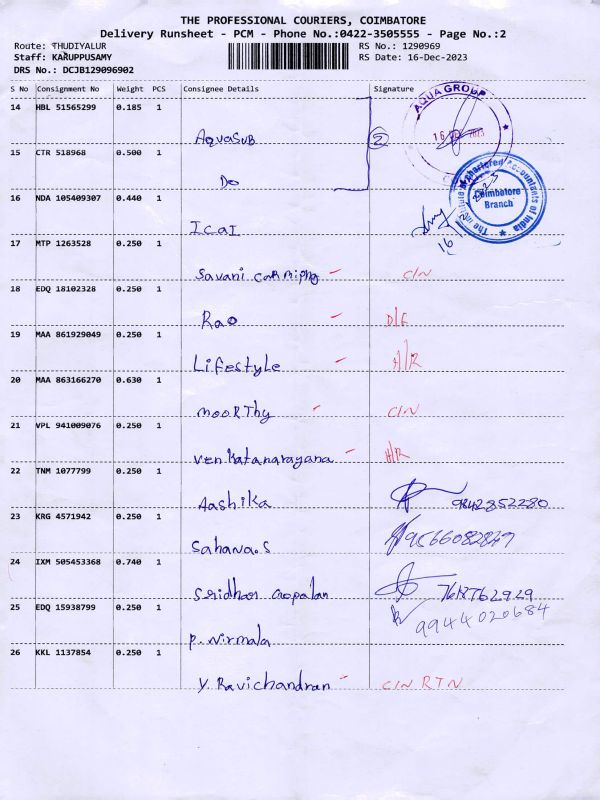 THE PROFESSIONAL COURIERS, COIMBATORE
Delivery Runsheet - PCM - Phone No.:0422-3505555 - Page No.:2
Route: THUDIYALUR RS No.: 1290969
Staff: KARUPPUSAMY RS Date: 16-Dec-2023
DRS No.: DCJB129096902
S No Consignment No Weight PCS Consignee Details Signature
14 HBL 51565299 0.185 1
AQUA GROUP
Aquasub 2
15 CTR 518968 0.500 1
Do
The Institute of Chartered Accountants of India
Coimbatore
Branch
16 NDA 105409307 0.440 1
ICAI 16
17 MTP 1263528 0.250 1
Savani C/N
18 EDQ 18102328 0.250 1
Rao
19 MAA 861929049 0.250 1
Lifestyle
20 MAA 863166270 0.630 1
mooRThy C/N
21 VPL 941009076 0.250 1
Venkatanarayana
22 TNM 1077799 0.250 1
Aashika 9842852280
23 KRG 4571942 0.250 1
Sahana.S
24 IXM 505453368 0.740 1
Sridhar Gopalan
25 EDQ 15938799 0.250 1
9944020684
P. Nirmala
26 KKL 1137854 0.250 1
Y. Ravichandran C/N RTN